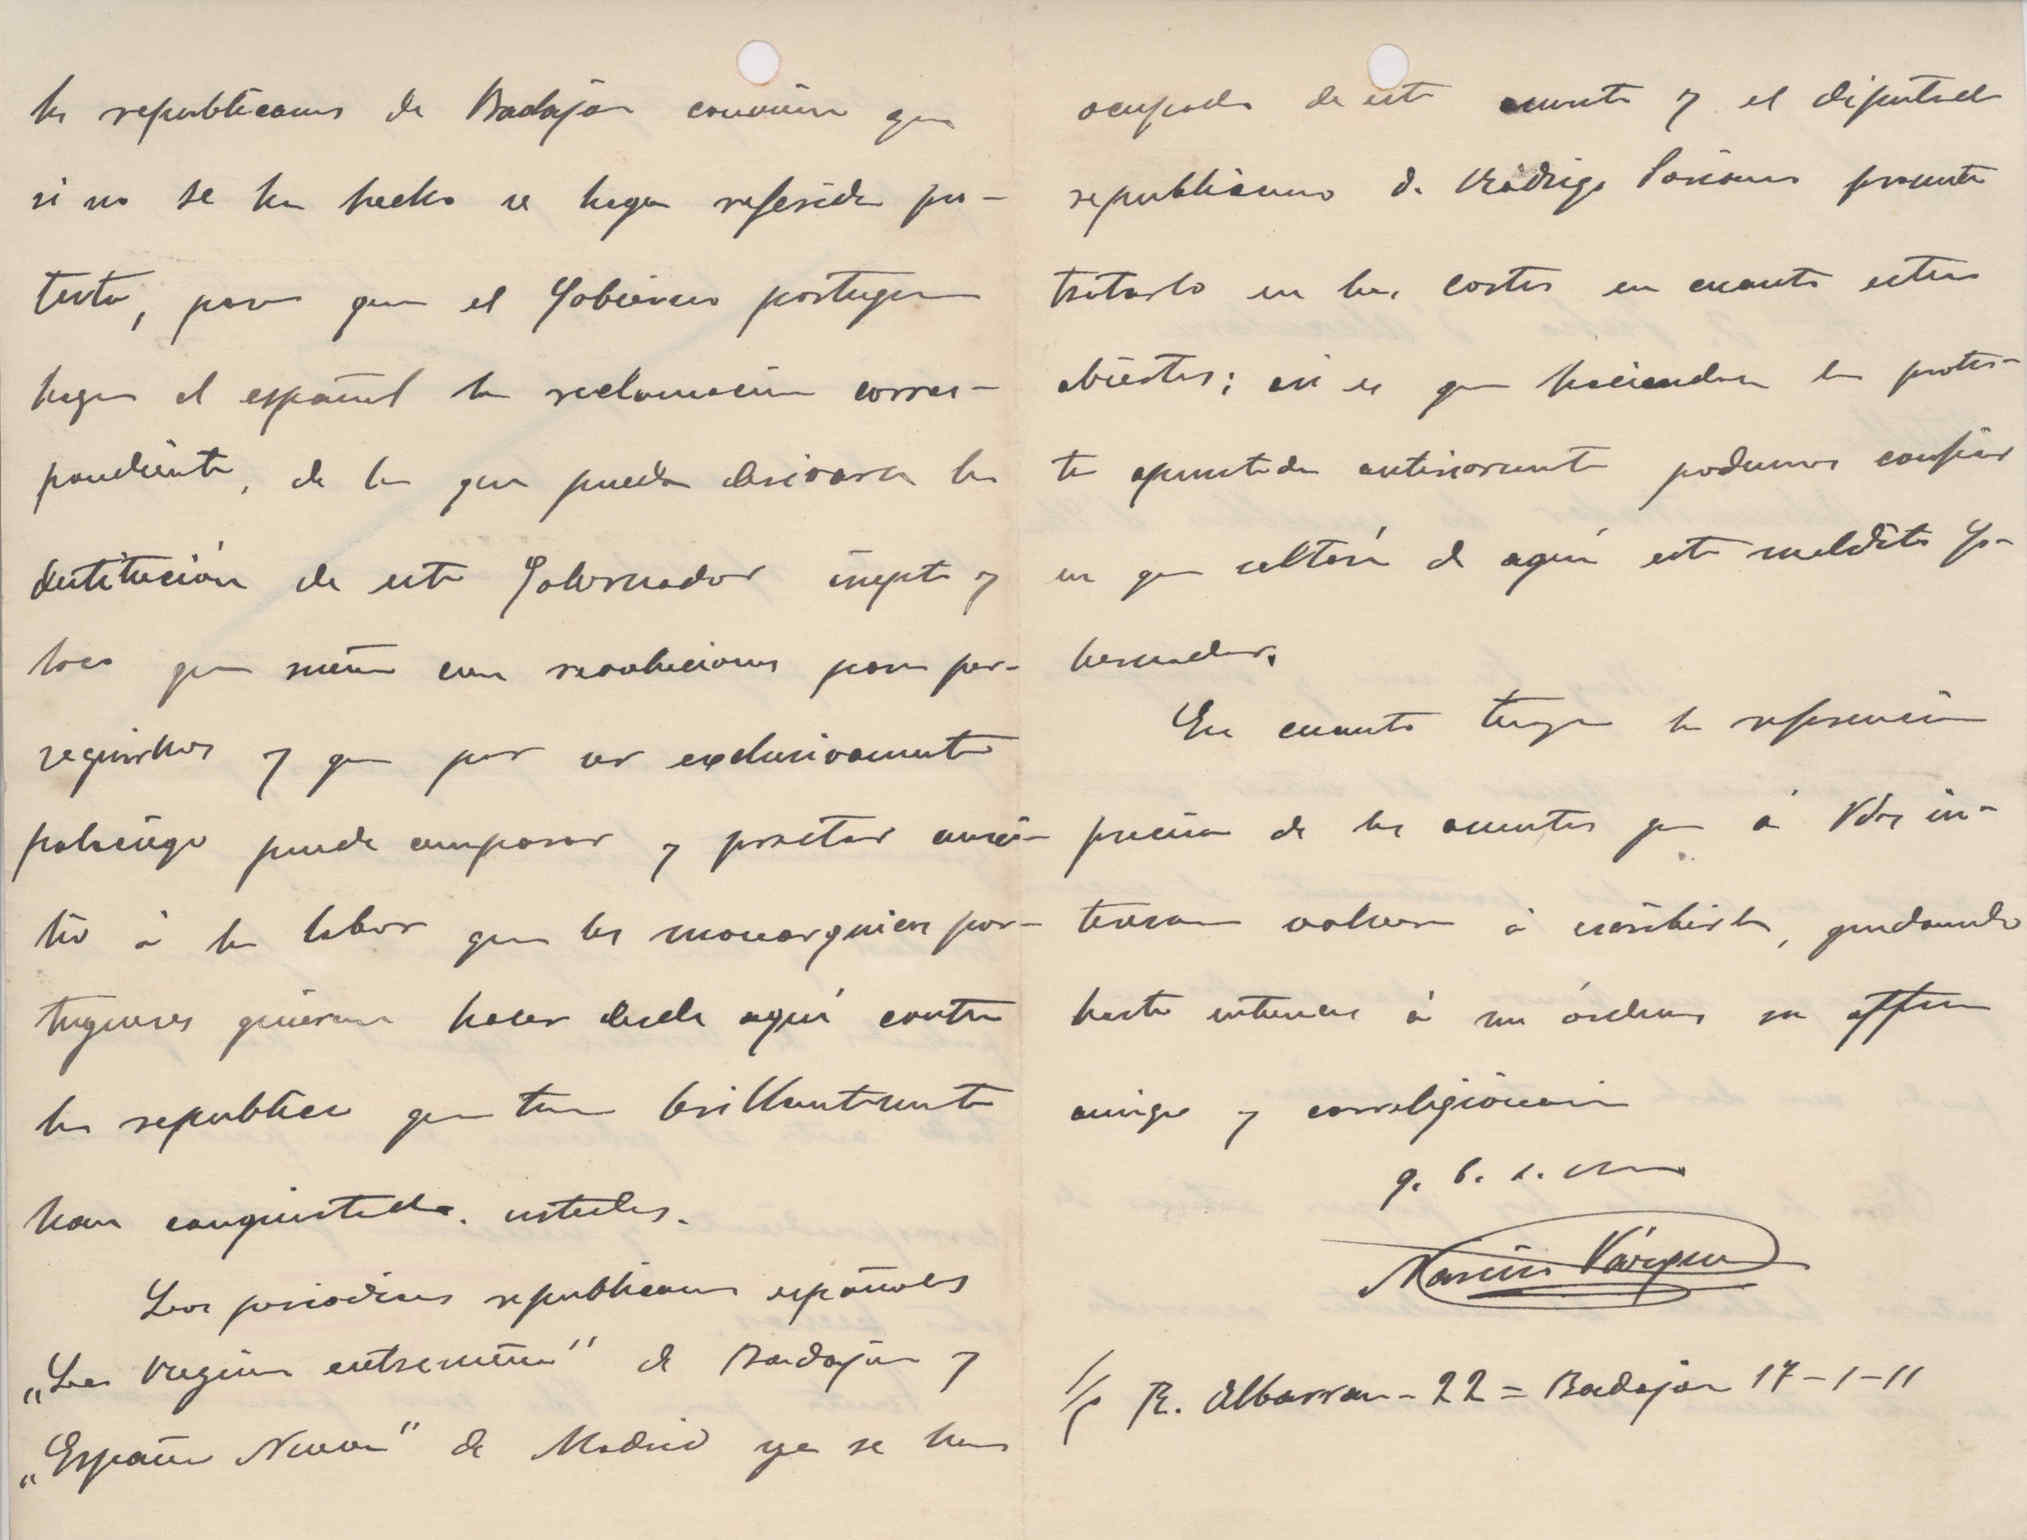 los republicanos de Badajoz conviene que
si no se ha hecho se haga referida pro-
testa, para que el Gobierno portugues
haga al español la reclamación corres-
pondiente, de la que pueda derivarse la
destitución de este Gobernador inepto y
loco que sueña con revoluciones para per-
seguirnos y que por ser exclusivamente
palaciego puede amparar y prestar auxi-
lio á la labor que los monarquicos por-
tugueses quieran hacer desde aquí contra
la republica que tan brillantemente
han conquistado ustedes.
Los periodicos republicanos españoles
„La Region extremeña" de Badajoz y
„España Nueva" de Madrid ya se han
ocupado de este asunto y el diputado
republicano D. Rodrigo Soriano promete
tratarlo en las cortes en cuanto esten
abiertas; asi es que haciendose la protes-
ta apuntada anteriormente podemos confiar
en que saltará de aquí este maldito Go-
bernador.
En cuanto tenga la referencia
precisa de los asuntos que á Vdes in-
teresan volveré á escribirle, quedando
hasta entonces á sus órdenes su affmo
amigo y correligionario
q. b. s. m.
Narciso Vázquez
S/c R. Albarran - 22 = Badajoz 17-1-11